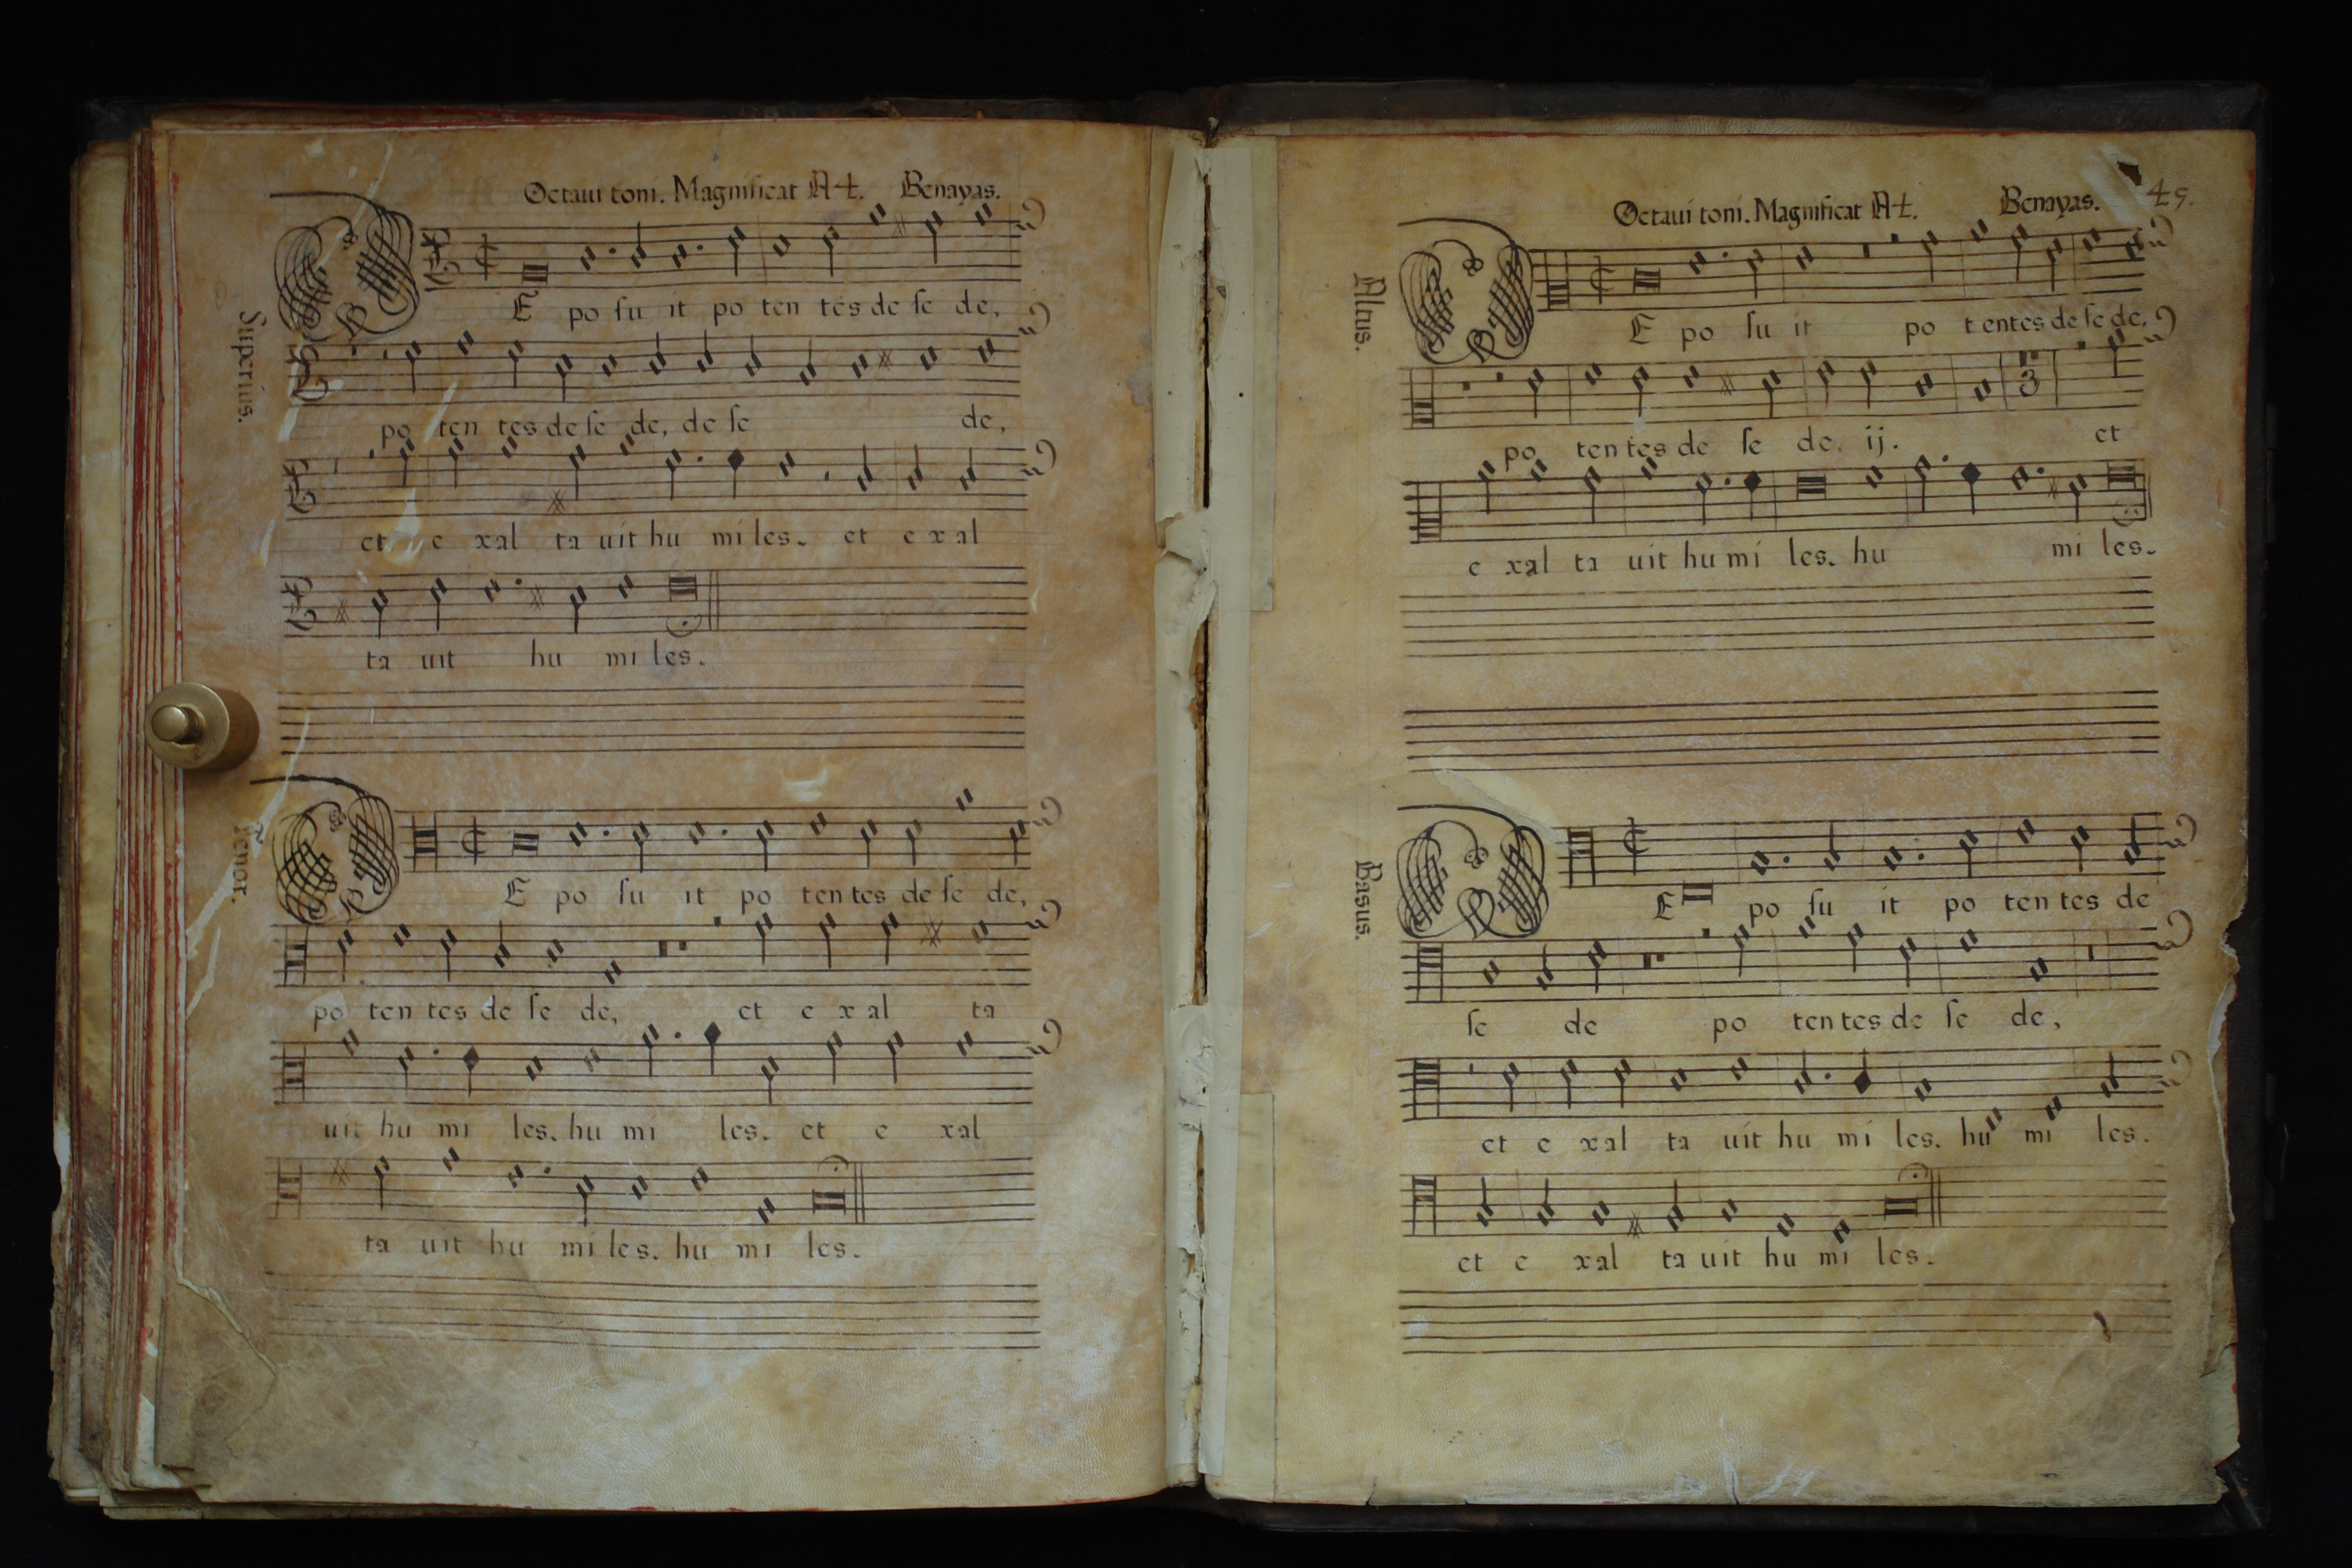 Octaui toni. Magnificat A4. Benayas.
Superius.
DE po su it po ten tes de se de,
po ten tes de se de, de se de,
et e xal ta uit hu mi les. et e xal
ta uit hu mi les.
Tenor.
DE po su it po ten tes de se de,
po ten tes de se de, et e xal ta
uit hu mi les. hu mi les. et e xal
ta uit hu mi les. hu mi les.
Octaui toni. Magnificat A4. Benayas. 45.
Altus.
DE po su it po tentes de se de,
po ten tes de se de, ij. et
3
e xal ta uit hu mi les. hu mi les.
Basus.
DE po su it po ten tes de
se de po ten tes de se de,
et e xal ta uit hu mi les. hu mi les.
et e xal ta uit hu mi les.